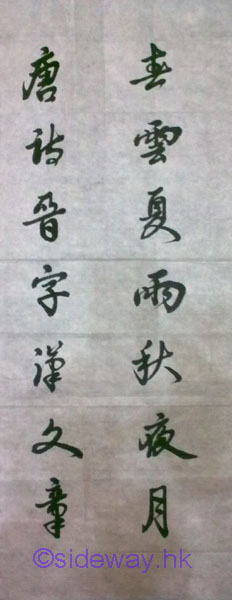 春雲夏雨秋夜月
唐詩晉字漢文章
©sideway.hk